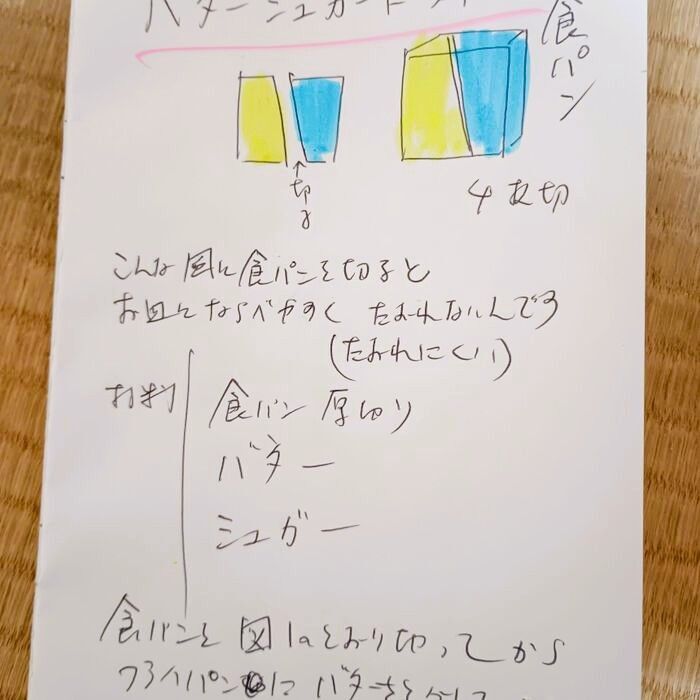 バターシュガートースト
食パン
↑
切る
4枚切
こんな図に食パンを切ると
お皿にならべやすく たおれないんです
(たおれにくい)
材料
食パン 厚切り
バター
シュガー
食パンを 図のとおり切ってから
フライパンに バターをとかして